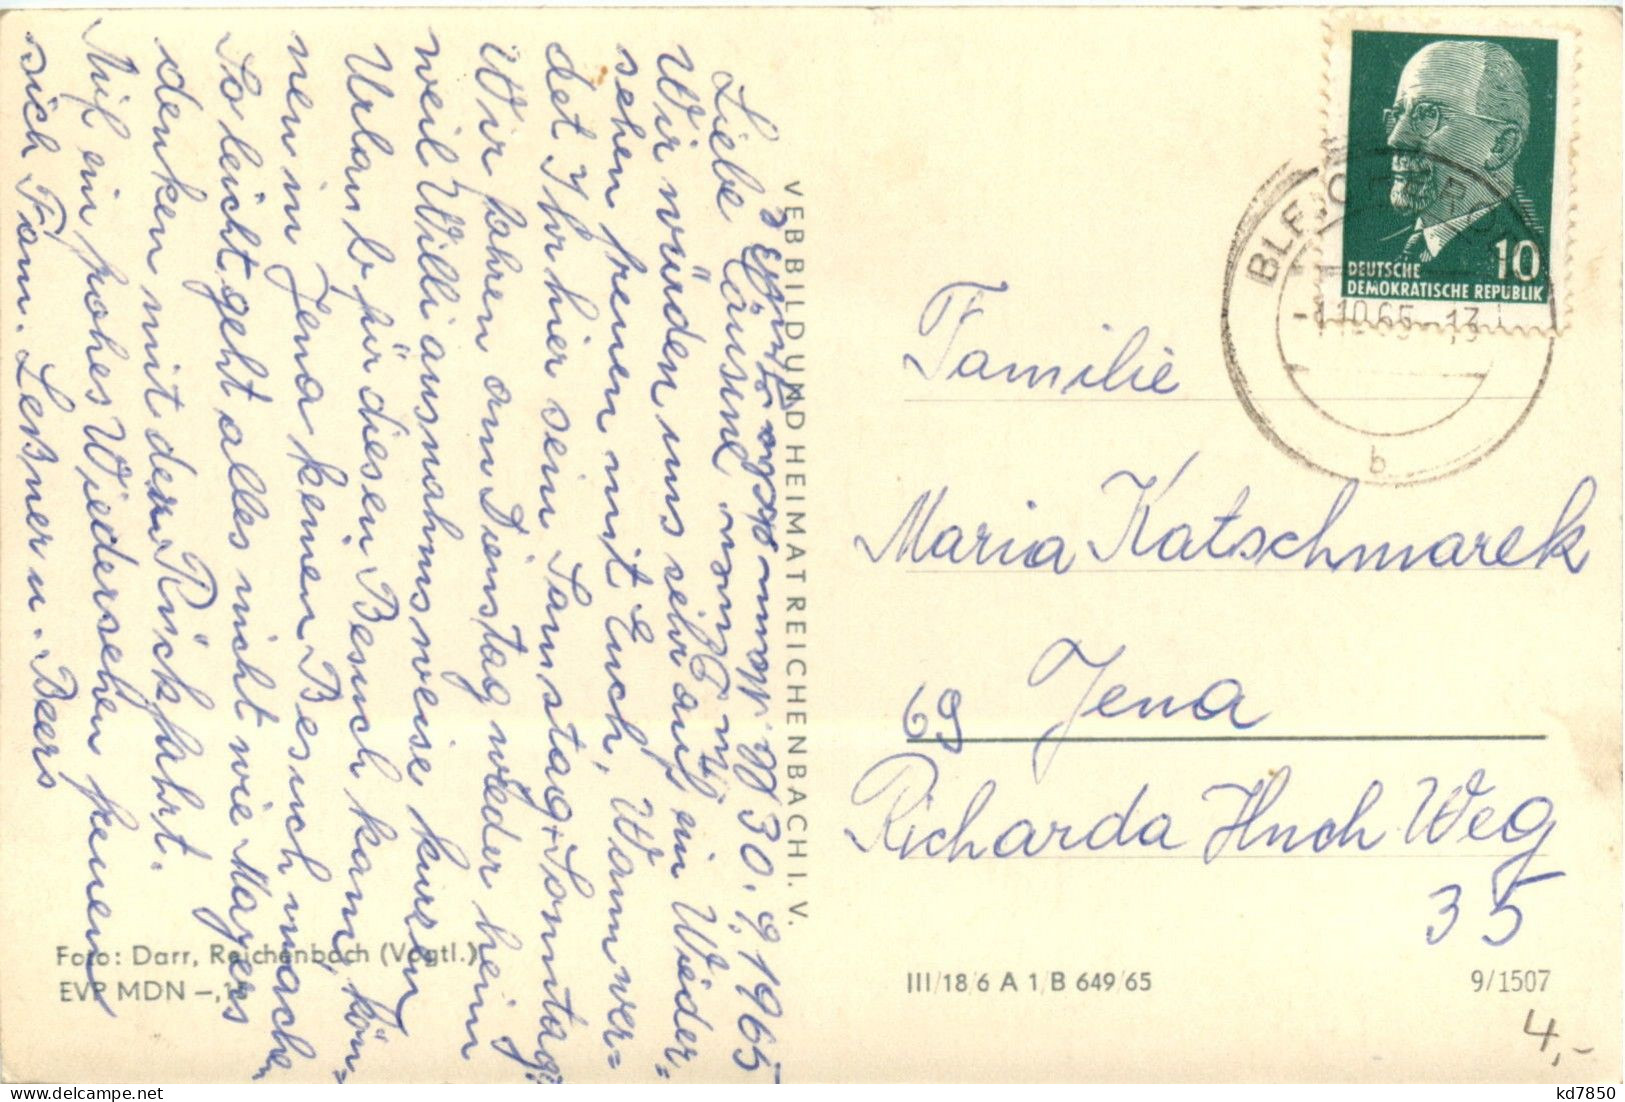 30.9.1965
Liebe
Wir würden uns sehr auf ein Wieder=
sehen freuen mit Euch, Wann wer=
det Ihr hier sein Samstag + Sonntag?
Wir fahren am Dienstag wieder heim
weil Willi ausnahmsweise kurzen
Urlaub für diesen Besuch kam, kön=
nen in Jena keinen Besuch machen,
So leicht geht alles nicht wie Mayers
denken mit der Rückfahrt.
Auf ein frohes Wiedersehen freuen
sich Fam. Leßner u. Beers
VEB BILD UND HEIMAT REICHENBACH I. V.
Foto: Darr, Reichenbach (Vogtl.)
EVP MDN –,15
10
DEUTSCHE
DEMOKRATISCHE REPUBLIK
-1.10.65-13
b
Familie
Maria Katschmarek
69 Jena
Richarda Huch Weg
35
III/18/6 A 1/B 649/65
9/1507
4,-
kd7850